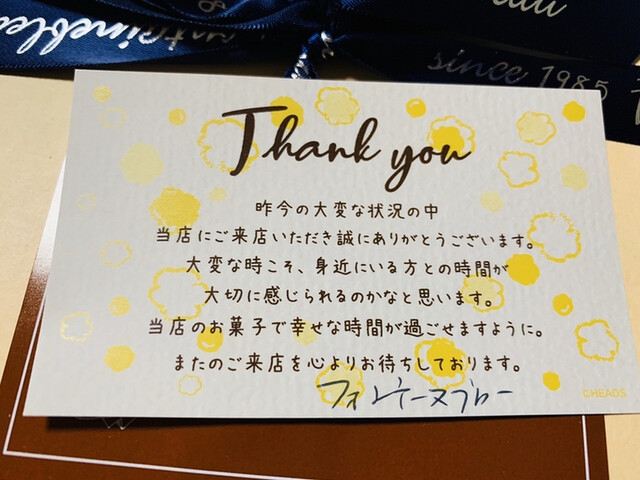 since 1985
Thank you
昨今の大変な状況の中
当店にご来店いただき誠にありがとうございます。
大変な時こそ、身近にいる方との時間が
大切に感じられるのかなと思います。
当店のお菓子で幸せな時間が過ごせますように。
またのご来店を心よりお待ちしております。
フォンテーヌブロー
©HEADS